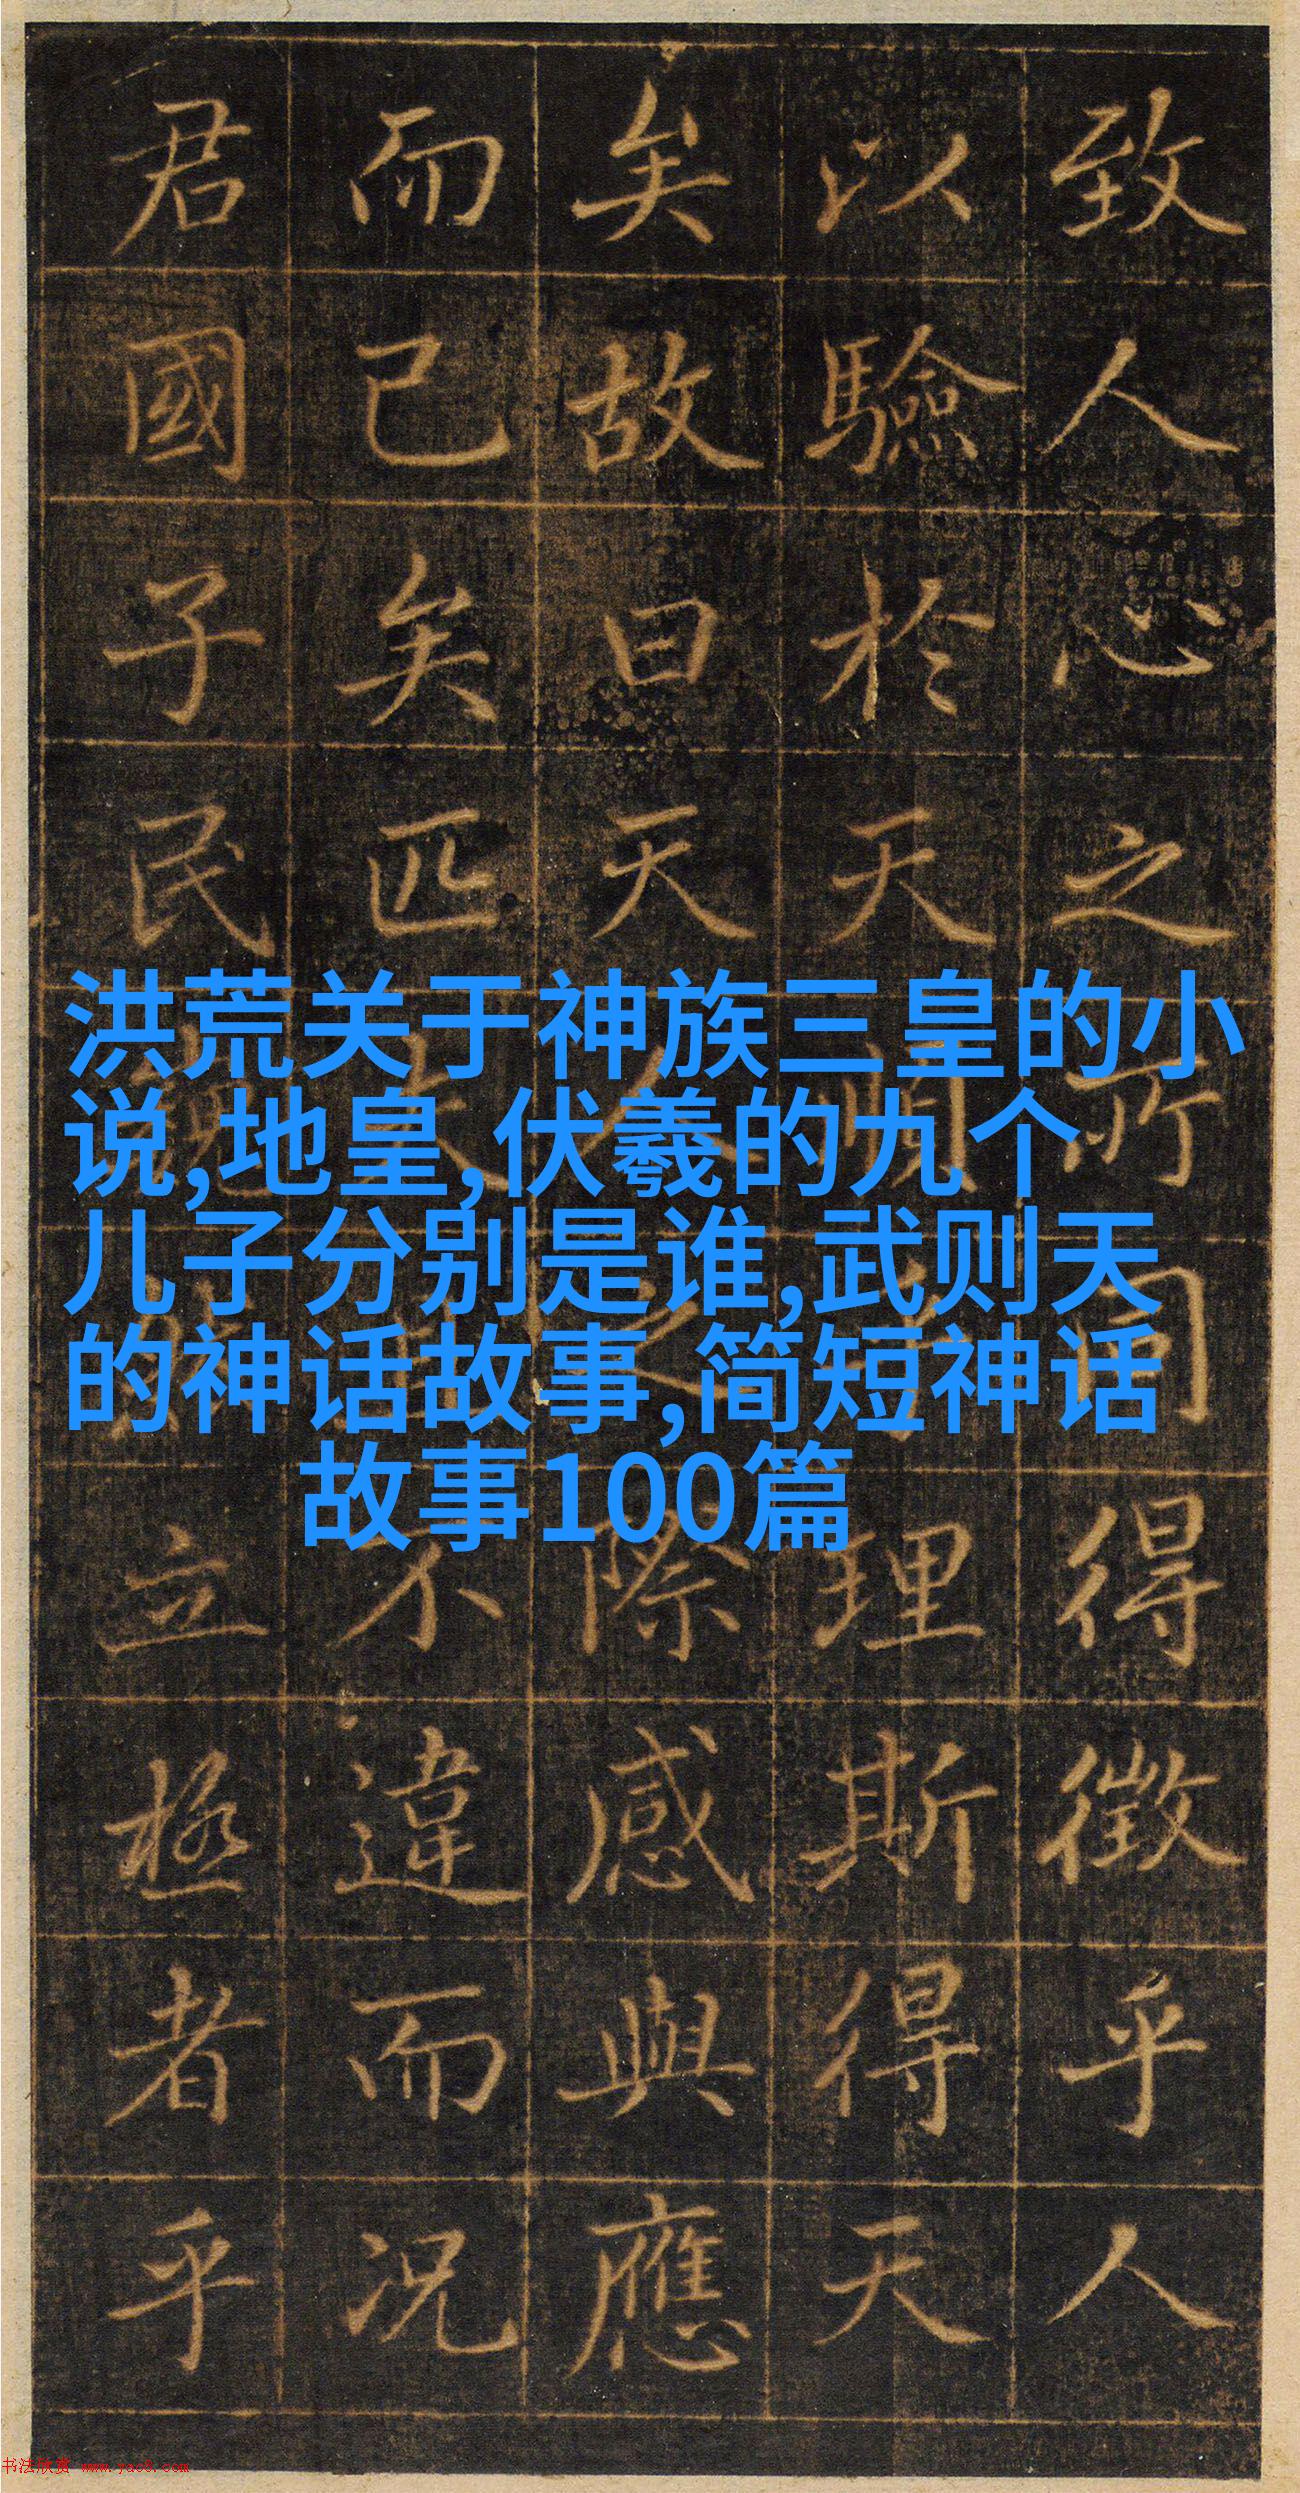 致人心之所同得徵乎人
以驗於天順理斯得天
矣故曰天人之際感與應
而已矣匹夫不違而況
君國子民立極者乎
洪荒关于神族三皇的小
说,地皇,伏羲的九个
儿子分别是谁,武则天
的神话故事,简短神话
故事100篇
书法欣赏 www.yac8.com